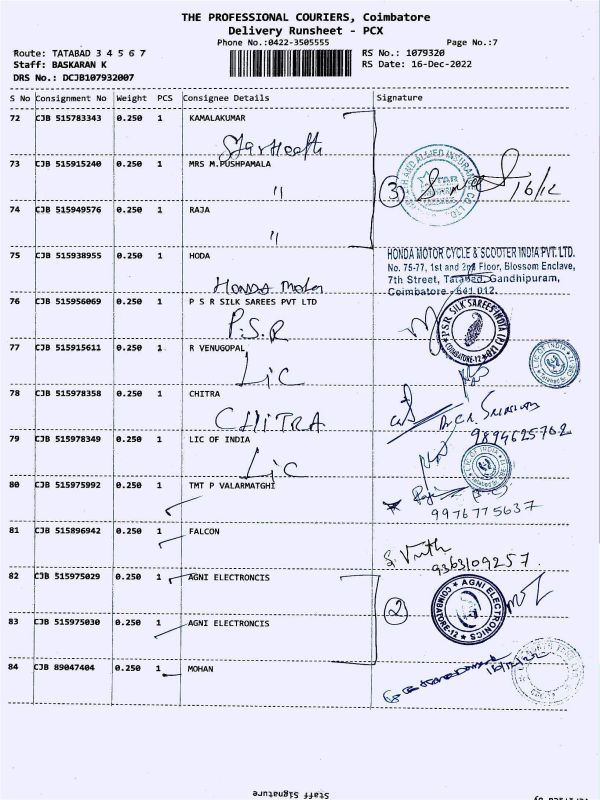 THE PROFESSIONAL COURIERS, Coimbatore
Delivery Runsheet - PCX
Phone No.:0422-3505555
Page No.:7
Route: TATABAD 3 4 5 6 7
RS No.: 1079320
Staff: BASKARAN K
RS Date: 16-Dec-2022
DRS No.: DCJB107932007
S No Consignment No Weight PCS Consignee Details Signature
72 CJB 515783343 0.250 1 KAMALAKUMAR
StarHealth
73 CJB 515915240 0.250 1 MRS M.PUSHPAMALA
"
3
16/12
74 CJB 515949576 0.250 1 RAJA
"
75 CJB 515938955 0.250 1 HODA
Honda Motor
HONDA MOTOR CYCLE & SCOOTER INDIA PVT. LTD.
No. 75-77, 1st and 2nd Floor, Blossom Enclave,
7th Street, Tatabad, Gandhipuram,
Coimbatore - 641 012.
76 CJB 515956069 0.250 1 P S R SILK SAREES PVT LTD
P.S.R
PSR SILK SAREES INDIA (P) LTD
COIMBATORE-12
77 CJB 515915611 0.250 1 R VENUGOPAL
LIC
LIC OF INDIA
78 CJB 515978358 0.250 1 CHITRA
CHITRA
9894625762
79 CJB 515978349 0.250 1 LIC OF INDIA
LIC
LIC OF INDIA
80 CJB 515975992 0.250 1 TMT P VALARMATGHI
9976775637
81 CJB 515896942 0.250 1 FALCON
9363109257
82 CJB 515975029 0.250 1 AGNI ELECTRONCIS
2
AGNI ELECTRONICS
COIMBATORE-12
83 CJB 515975030 0.250 1 AGNI ELECTRONCIS
84 CJB 89047404 0.250 1 MOHAN
Staff Signature